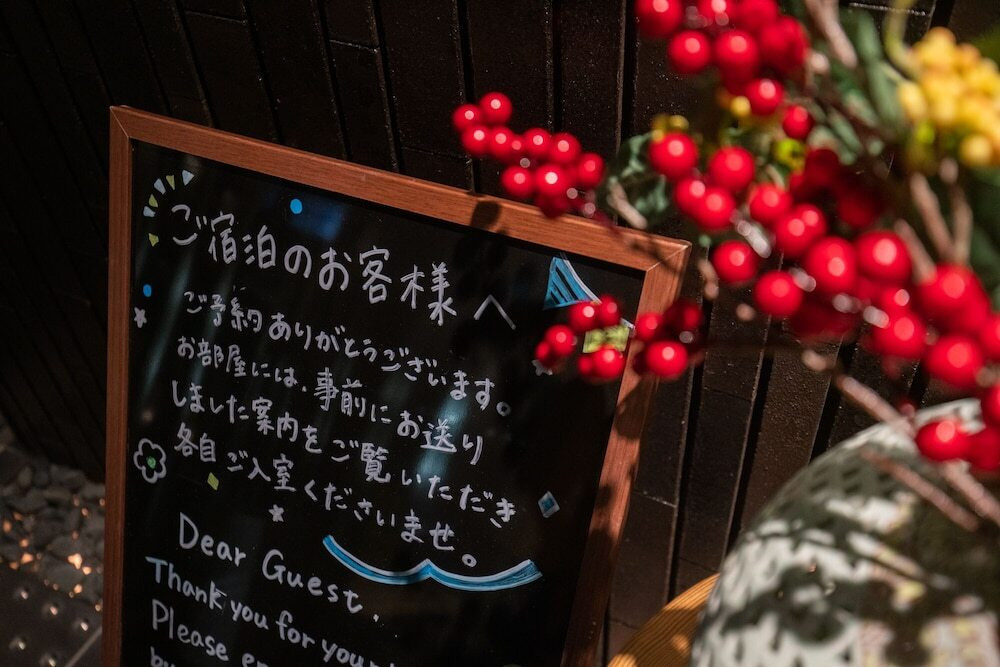 ご宿泊のお客様へ
ご予約ありがとうございます。
お部屋には、事前にお送り
しました案内をご覧いただき
各自ご入室くださいませ。
Dear Guest,
Thank you for
Please